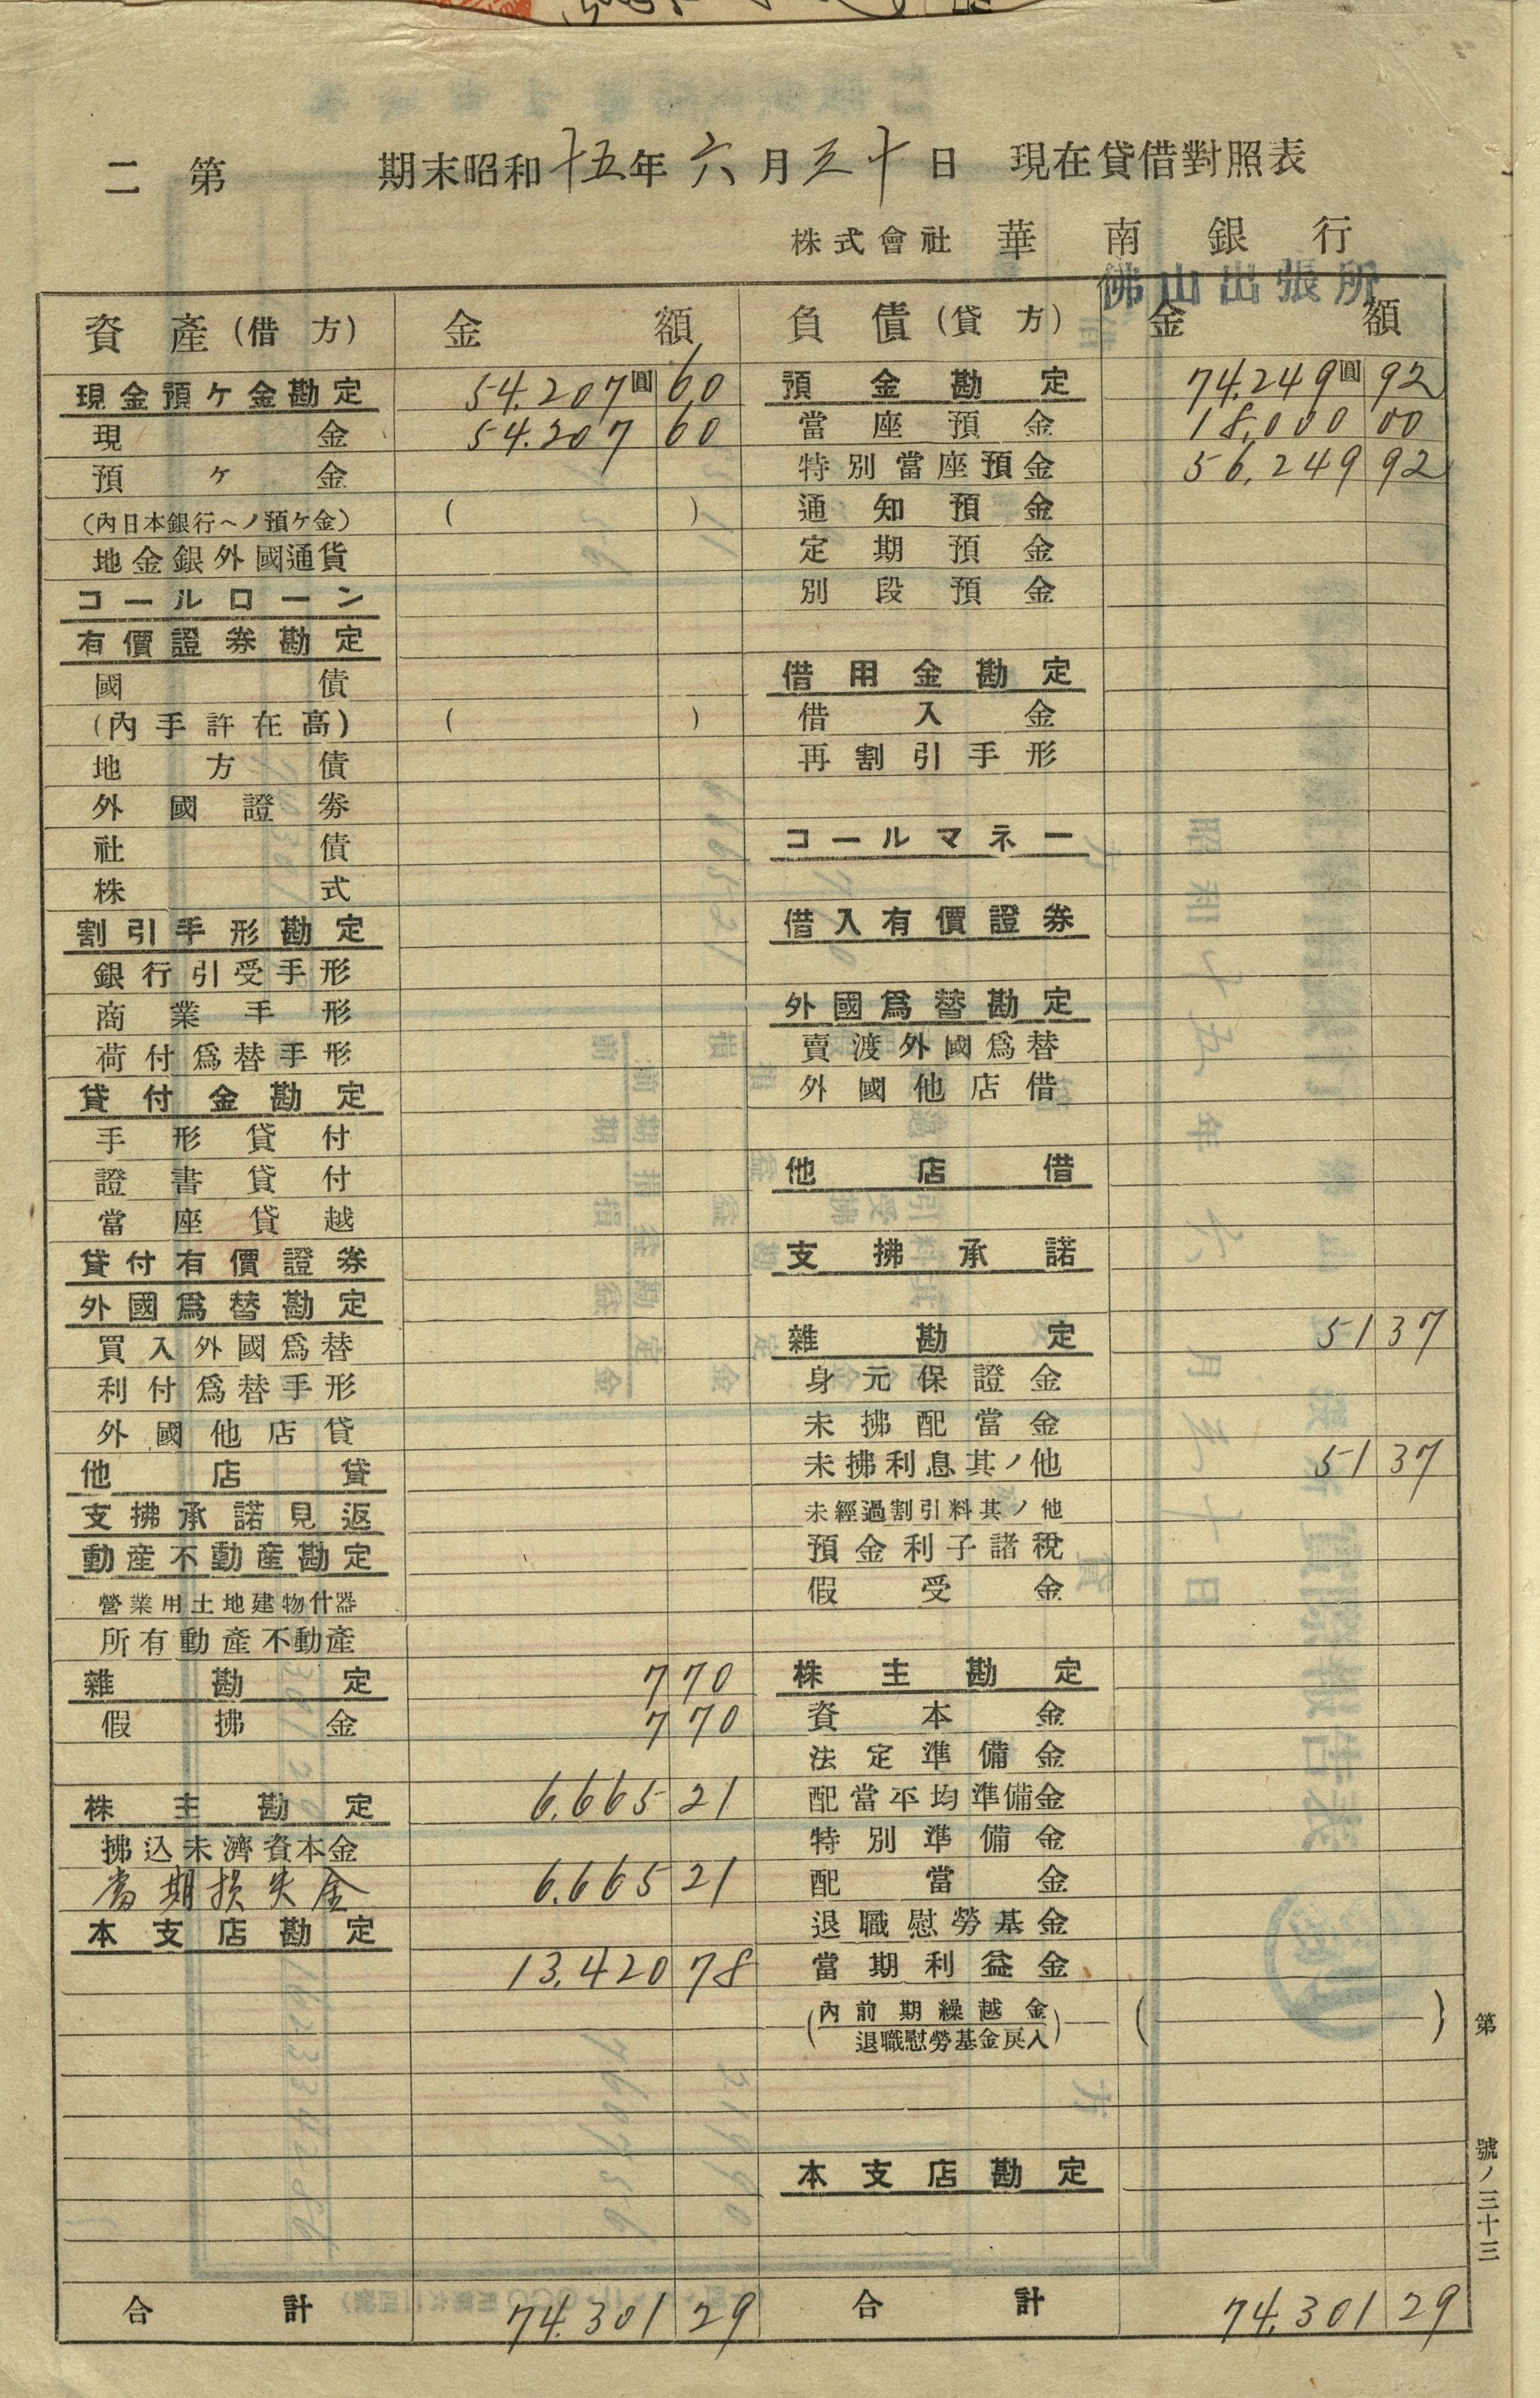 二第　期末昭和十五年六月三十日　現在貸借對照表
株式會社　華南銀行
佛山出張所
資產(借方)　金額　負債(貸方)　金額
現金預ケ金勘定　54.207圓60　預金勘定　74.249圓92
現金　54.207 60　當座預金　18.000 00
預ケ金　特別當座預金　56.249 92
(內日本銀行ヘノ預ケ金)　(　)　通知預金
地金銀外國通貨　定期預金
コールローン　別段預金
有價證券勘定
國債　借用金勘定
(內手許在高)　(　)　借入金
地方債　再割引手形
外國證券
社債　コールマネー
株式
割引手形勘定　借入有價證券
銀行引受手形
商業手形　外國爲替勘定
荷付爲替手形　賣渡外國爲替
貸付金勘定　外國他店借
手形貸付
證書貸付　他店借
當座貸越
貸付有價證券　支拂承諾
外國爲替勘定
買入外國爲替　雜勘定　51 37
利付爲替手形　身元保證金
外國他店貸　未拂配當金
他店貸　未拂利息其ノ他　51 37
支拂承諾見返　未經過割引料其ノ他
動產不動產勘定　預金利子諸稅
營業用土地建物什器　假受金
所有動產不動產
雜勘定　7 70　株主勘定
假拂金　7 70　資本金
法定準備金
株主勘定　6.665 21　配當平均準備金
拂込未濟資本金　特別準備金
當期損失金　6.665 21　配當金
本支店勘定　退職慰勞基金
13.420 78　當期利益金
(內前期繰越金　(　)
退職慰勞基金戾入)
本支店勘定
合計　74.301 29　合計　74.301 29
第　號ノ三十三